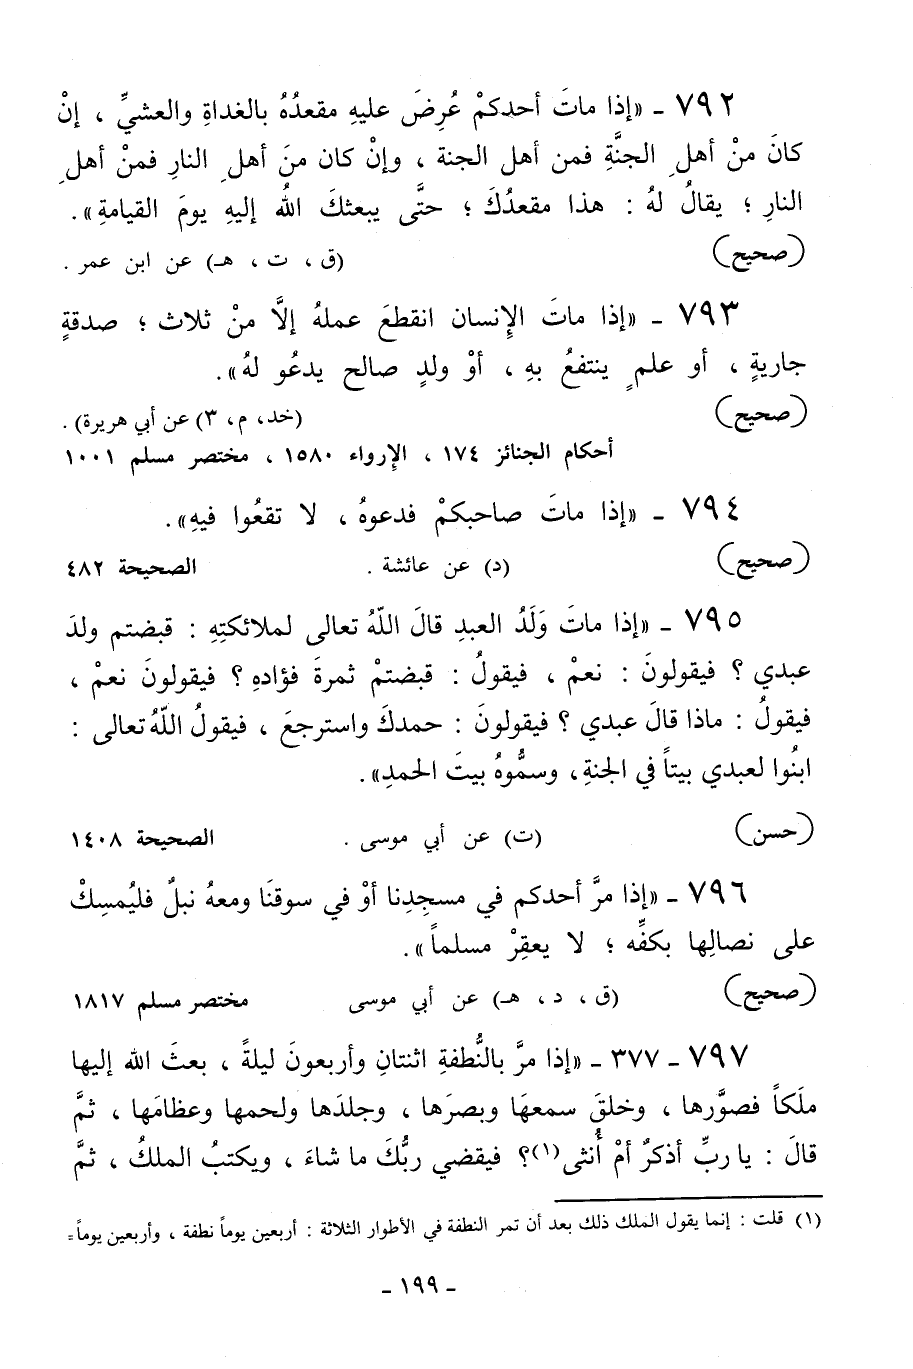 ٧٩٢ ـ «إذا ماتَ أحدكمْ عُرِضَ عليهِ مقعدُهُ بالغداةِ والعشيِّ ، إنْ
كانَ منْ أهلِ الجنَّةِ فمن أهل الجنة ، وإنْ كان منَ أهلِ النارِ فمنْ أهلِ
النارِ ؛ يقالُ لهُ : هذا مقعدُكَ ؛ حتَّى يبعثكَ اللهُ إليهِ يومَ القيامةِ» .
(صحيح) (ق ، ت ، هـ) عن ابن عمر .
٧٩٣ ـ «إذا ماتَ الإِنسان انقطعَ عملهُ إلاَّ منْ ثلاث ؛ صدقةٍ
جاريةٍ ، أو علمٍ ينتفعُ بهِ ، أوْ ولدٍ صالح يدعُو لهُ» .
(صحيح) (خد، م، ٣) عن أبي هريرة) .
أحكام الجنائز ١٧٤ ، الإرواء ١٥٨٠ ، مختصر مسلم ١٠٠١
٧٩٤ ـ «إذا ماتَ صاحبكمْ فدعوهُ ، لا تقعُوا فيهِ» .
(صحيح) (د) عن عائشة . الصحيحة ٤٨٢
٧٩٥ ـ «إذا ماتَ وَلَدُ العبدِ قالَ اللّهُ تعالى لملائكتِهِ : قبضتم ولدَ
عبدي ؟ فيقولونَ : نعمْ ، فيقولُ : قبضتمْ ثمرةَ فؤادهِ ؟ فيقولونَ نعمْ ،
فيقولُ : ماذا قالَ عبدي ؟ فيقولونَ : حمدكَ واسترجعَ ، فيقولُ اللّهُ تعالى :
ابنُوا لعبدي بيتاً في الجنةِ، وسمُّوهُ بيتَ الحمدِ» .
(حسن) (ت) عن أبي موسى . الصحيحة ١٤٠٨
٧٩٦ ـ «إذا مرَّ أحدكم في مسجِدِنا أوْ في سوقنَا ومعهُ نبلٌ فليُمسِكْ
على نصالِها بكفِّه ؛ لا يعقِرْ مسلماً» .
(صحيح) (ق ، د ، هـ) عن أبي موسى مختصر مسلم ١٨١٧
٧٩٧ ـ ٣٧٧ ـ «إذا مرَّ بالنُّطفةِ اثنتانِ وأربعونَ ليلةً ، بعثَ الله إليها
ملَكاً فصوَّرها ، وخلقَ سمعهَا وبصرَها ، وجلدَها ولحمها وعظامَها ، ثمَّ
قالَ : يا ربِّ أذكرٌ أمْ أُنثى(١)؟ فيقضي ربُّكَ ما شاءَ ، ويكتبُ الملكُ ، ثمَّ
(١) قلت : إنما يقول الملك ذلك بعد أن تمر النطفة في الأطوار الثلاثة : أربعين يوماً نطفة ، وأربعين يوماً =
ـ ١٩٩ ـ